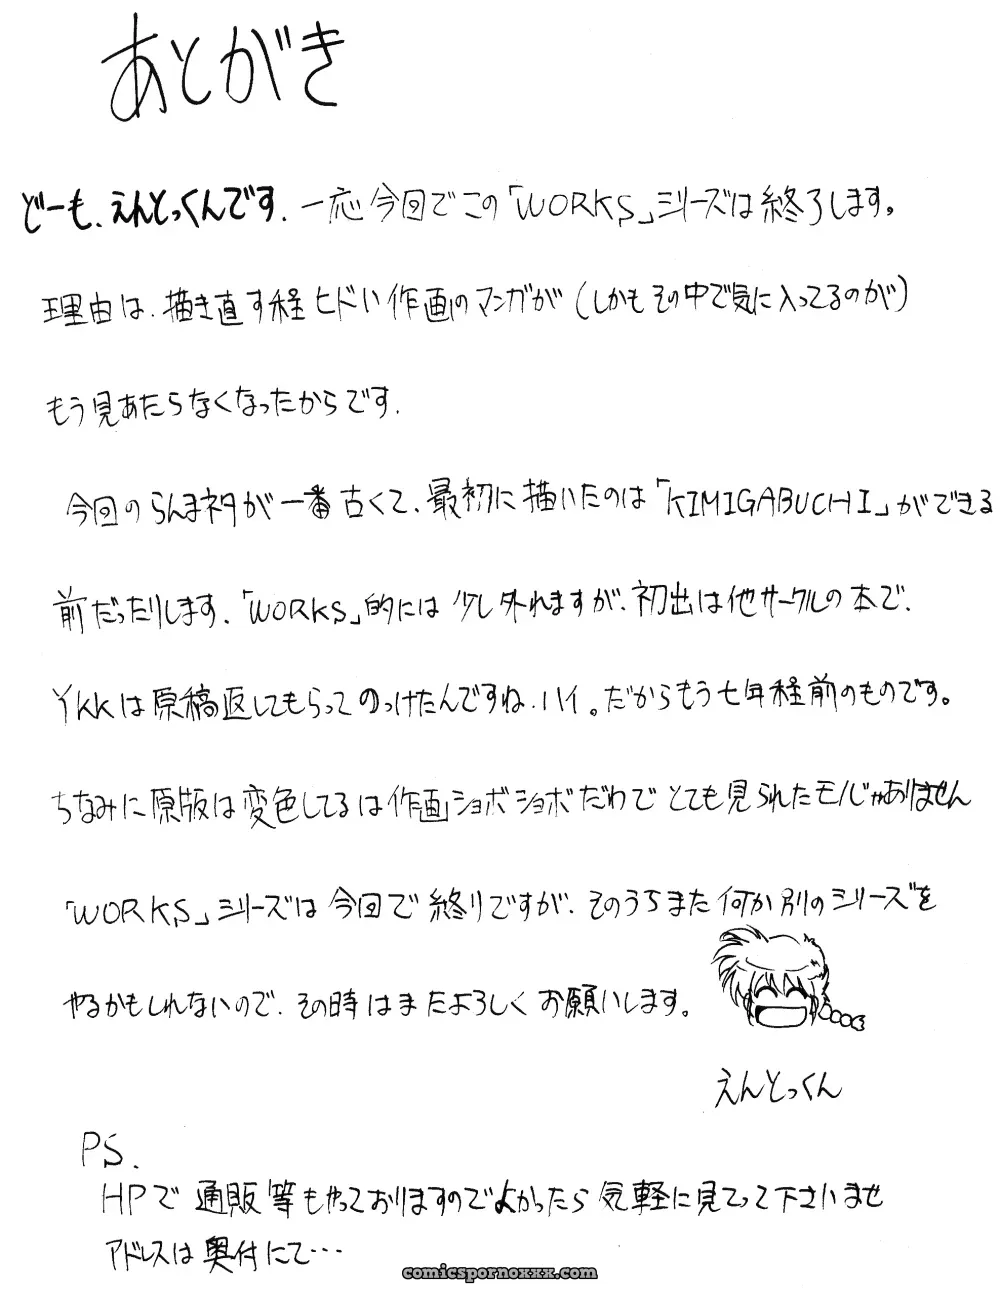 あとがき
どーも、えんとっくんです。一応今回でこの「WORKS」シリーズは終了します。
理由は、描き直す程ヒドい作画のマンガが(しかもその中で気に入ってるのが)
もう見あたらなくなったからです。
今回のらんまネタが一番古くて、最初に描いたのは「KIMIGABUCHI」ができる
前だったりします。「WORKS」的には少し外れますが、初出は他サークルの本で、
YKKは原稿返してもらってのっけたんですね、ハイ。だからもう七年程前のものです。
ちなみに原版は変色してるは作画ショボショボだわでとても見られたモノじゃありません
「WORKS」シリーズは今回で終りですが、そのうちまた何か別のシリーズを
やるかもしれないので、その時はまたよろしくお願いします。
えんとっくん
PS.
HPで通販等もやっておりますのでよかったら気軽に見てって下さいませ
アドレスは奥付にて…
comicspornoxxx.com